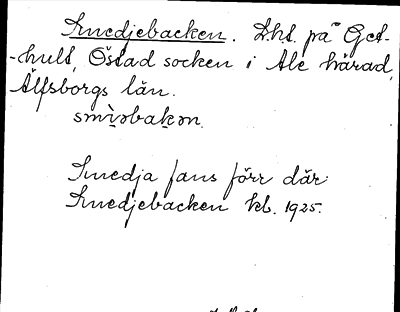 Smedjebacken. Lht. på Get-
-hult, Östad socken i Ale härad,
Älfsborgs län.
smìɂəbakən.
Smedja fans förr där.
Smedjebacken kb. 1925.